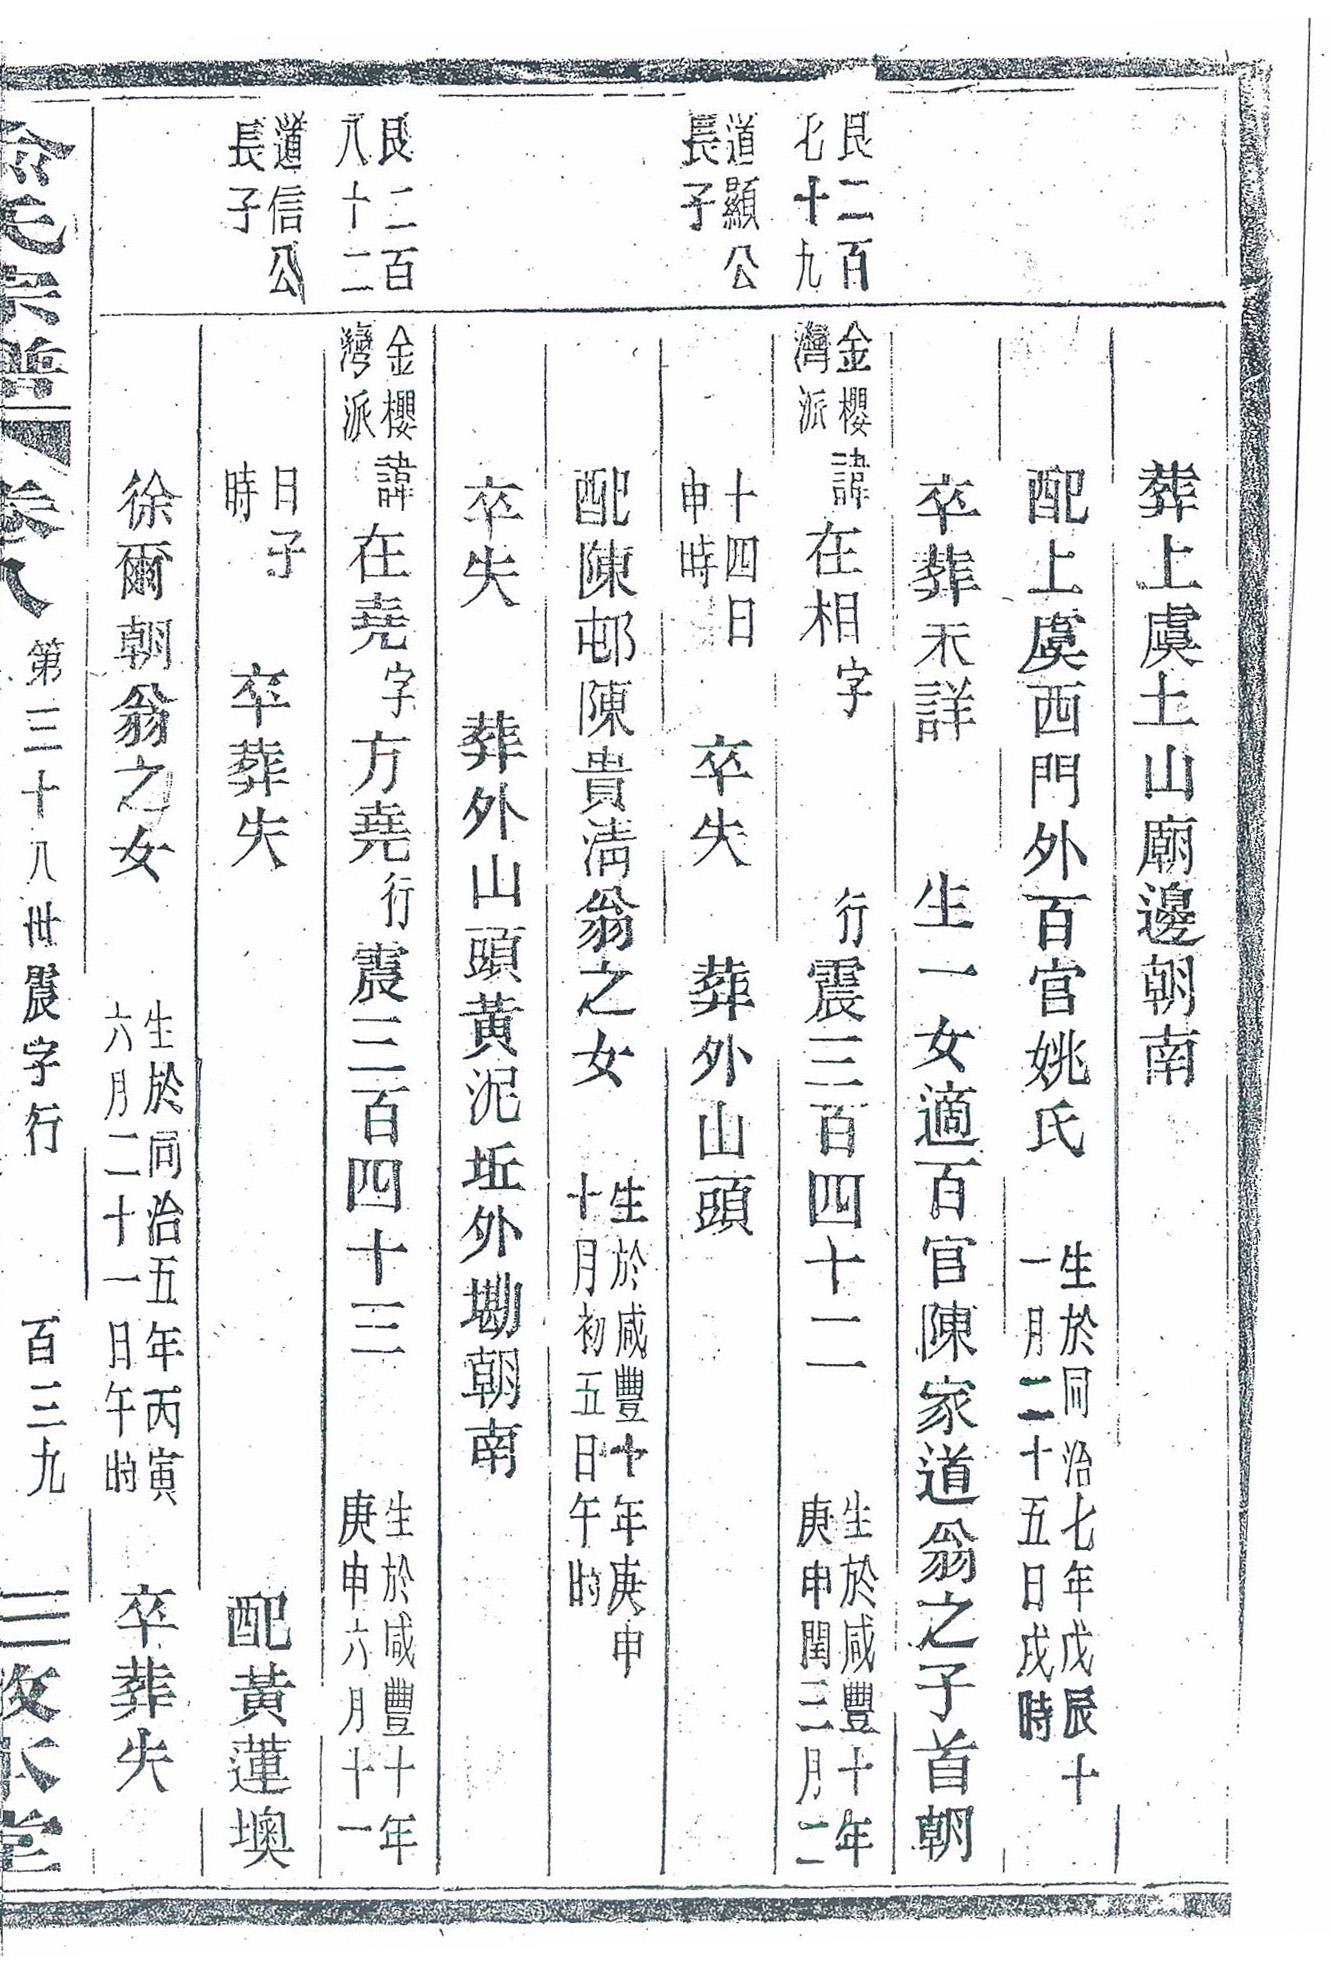 葬上虞土山廟邊朝南
配上虞西門外百官姚氏
生於同治七年戊辰十
一月二十五日戌時
卒葬未詳
生一女適百官陳家道翁之子首朝
艮二百
七十九
金櫻
灣派
諱在相字
行震三百四十二
生於咸豐十年
庚申閏三月二
道顯公
長子
十四日
申時
卒失
葬外山頭
配陳邨陳貴清翁之女
生於咸豐十年庚申
十月初五日午時
卒失
葬外山頭黃泥坵外墈朝南
艮二百
八十二
金櫻
灣派
諱在堯字方堯行震三百四十三
生於咸豐十年
庚申六月十一
道信公
長子
日子
時
卒葬失
配黃蓮墺
徐爾朝翁之女
生於同治五年丙寅
六月二十一日午時
卒葬失
俞氏宗譜
卷八
第三十八世震字行
百三九
敦本堂